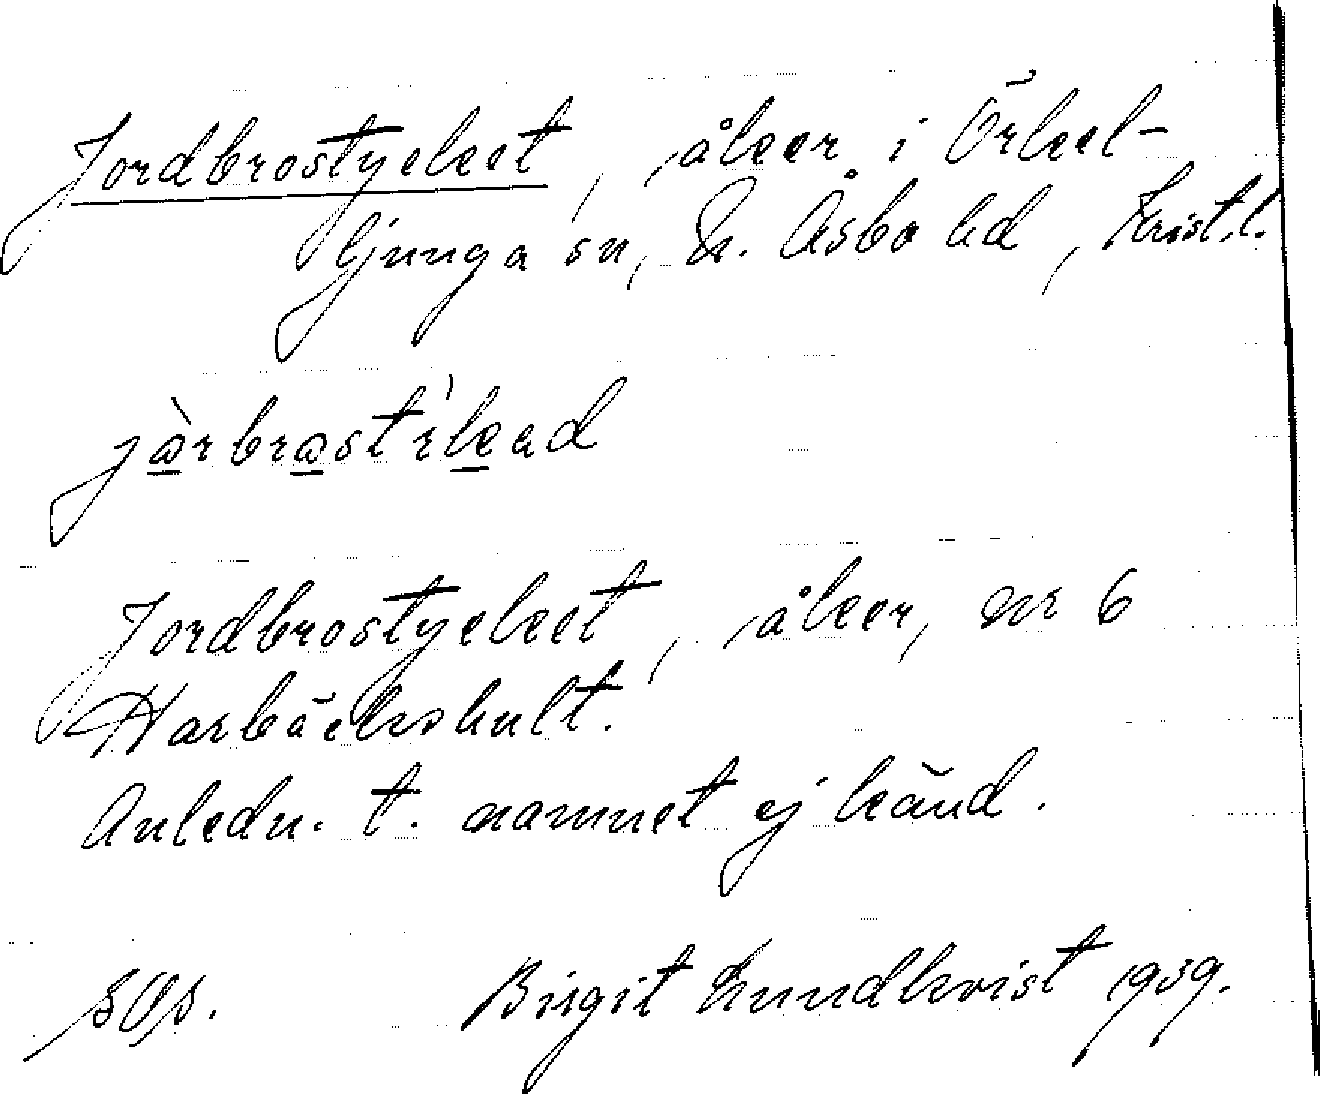 Jordbrostycket, åker i Örkel-
ljunga sn, N. Åsbo hd, Krist.l.
Jordbrostycket, åker, nr 6
Harbäckshult.
Anledn. t. namnet ej känd.
Birgit Lundkvist 1939.